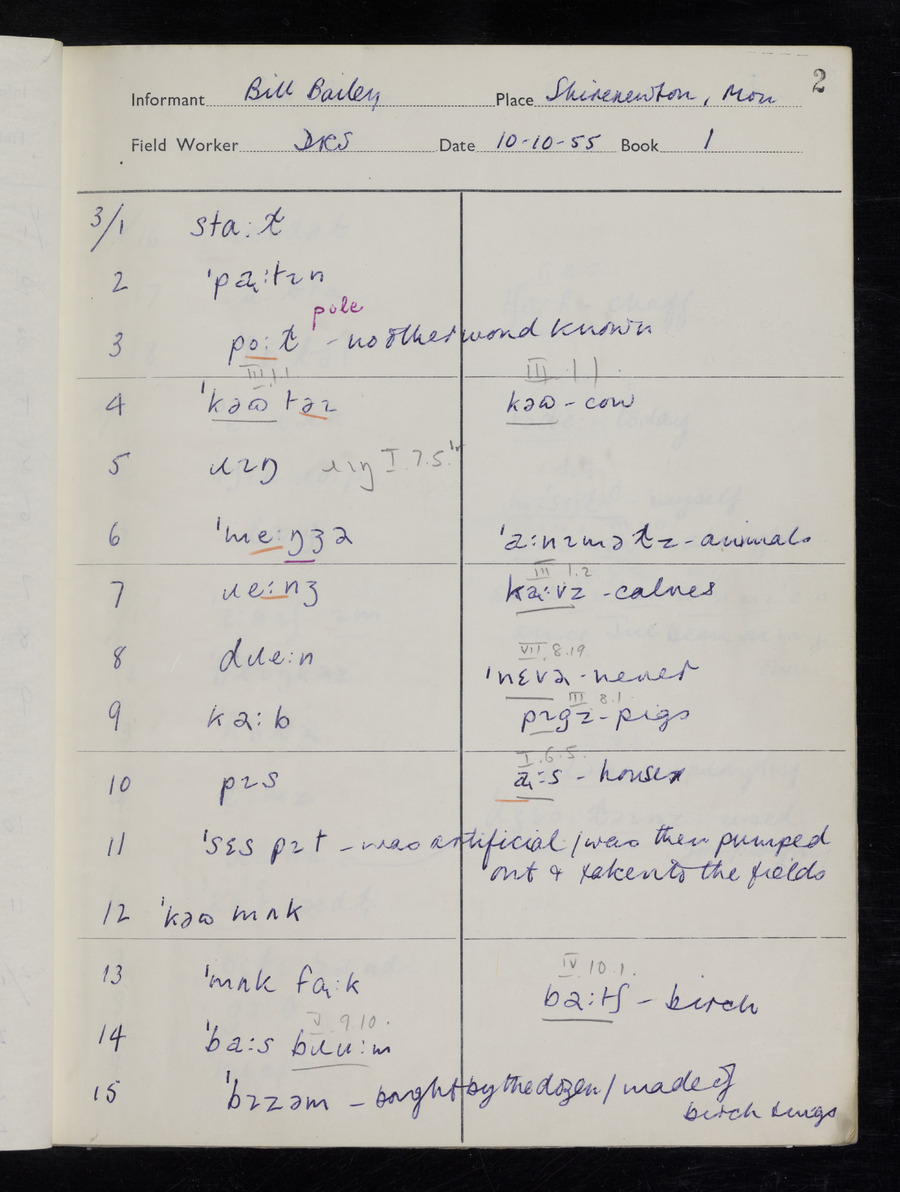 2
Informant Bill Bailey Place Shirenewton, Mon
Field Worker DRS Date 10-10-55 Book 1
3/1 sta:ɫ
2 ˈpa̤:tɪn
pole
3 po:ɫ - no other word known
III.1.1 III.1.1.
4 ˈkəʊ təɪ kəʊ - cow
5 ɹɪŋ ɹɪŋ I.7.5.
6 ˈme:ŋʒə ˈa:nɪməɫz - animals
III 1.2
7 ɹe:nʒ ka:vz - calves
VII.8.19
8 dɹe:n ˈnɛvə - never
III 8.1.
9 kə:b pɪgz - pigs
I.6.5.
10 pɪs a:s - houses
11 ˈsɛs pɪt - was artificial / was then pumped
out & taken to the fields
12 ˈkəʊ mʌk
IV.10.1.
13 ˈmʌk fa:k bə:tʃ - birch
I.9.10.
14 ˈba:s bɹu:m
15 ˈbɪzəm - bought by the dozen / made of
birch twigs